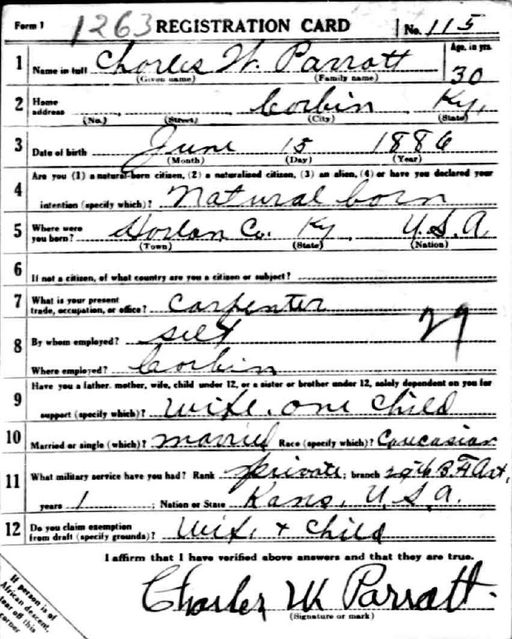 Form 1 1263 REGISTRATION CARD No. 115
1 Name in full Charles W. Parratt Age, in yrs. 30
(Given name) (Family name)
2 Home address Corbin Ky.
(No.) (Street) (City) (State)
3 Date of birth June 15 1886
(Month) (Day) (Year)
Are you (1) a natural-born citizen, (2) a naturalized citizen, (3) an alien, (4) or have you declared your
4 intention (specify which)? Natural born
5 Where were you born? Harlan Co. Ky U.S.A.
(Town) (State) (Nation)
6 If not a citizen, of what country are you a citizen or subject?
7 What is your present trade, occupation, or office? Carpenter
8 By whom employed? Self
29
Where employed? Corbin
Have you a father, mother, wife, child under 12, or a sister or brother under 12, solely dependent on you for
9 support (specify which)? Wife, one child
10 Married or single (which)? Married Race (specify which)? Caucasian
11 What military service have you had? Rank private; branch Art,
years 1; Nation or State Kans, U.S.A.
12 Do you claim exemption from draft (specify grounds)? Wife + child
I affirm that I have verified above answers and that they are true.
Charles W Parratt.
(Signature or mark)
If person is of
African descent,
tear off this
corner